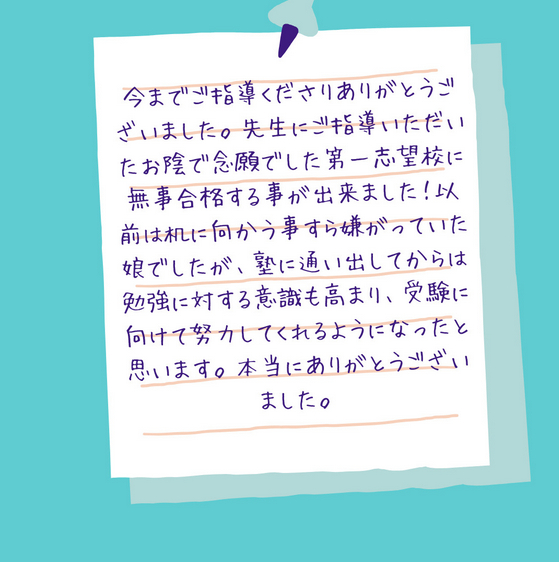 今までご指導くださりありがとうご
ざいました。先生にご指導いただい
たお陰で念願でした第一志望校に
無事合格する事が出来ました！以
前は机に向かう事すら嫌がっていた
娘でしたが、塾に通い出してからは
勉強に対する意識も高まり、受験に
向けて努力してくれるようになったと
思います。本当にありがとうござい
ました。